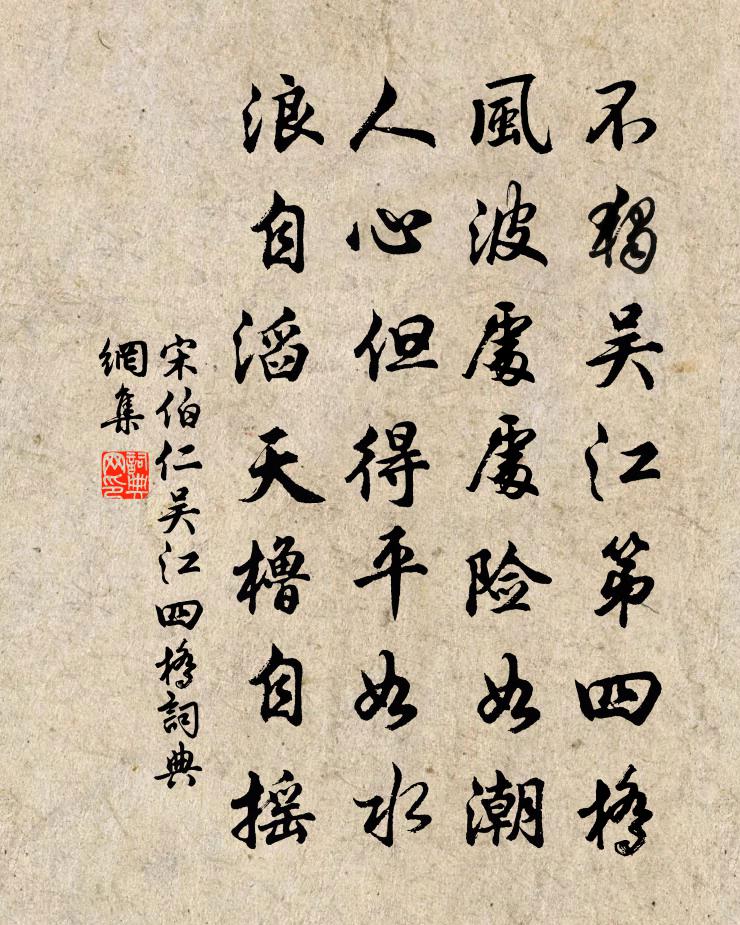 不獨吴江第四橋
風波處處險如潮
人心但得平如水
浪自滔天櫓自摇
宋伯仁吴江四橋詞典
網集
詞典
网印